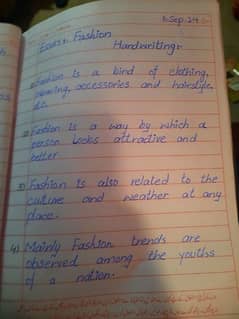 Sep.24
Fashion
Handwriting:
Fashion is a kind of clothing,
accessories and hairstyle,
etc.
2) Fashion is a way by which a
person looks attractive and
better.
3) Fashion is also related to the
culture and weather at any
place.
4) Mainly Fashion trends are
observed among the youths
of a nation.